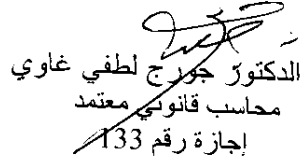 الدكتور جورج لطفي غاوي
محاسب قانوني معتمد
إجازة رقم 133